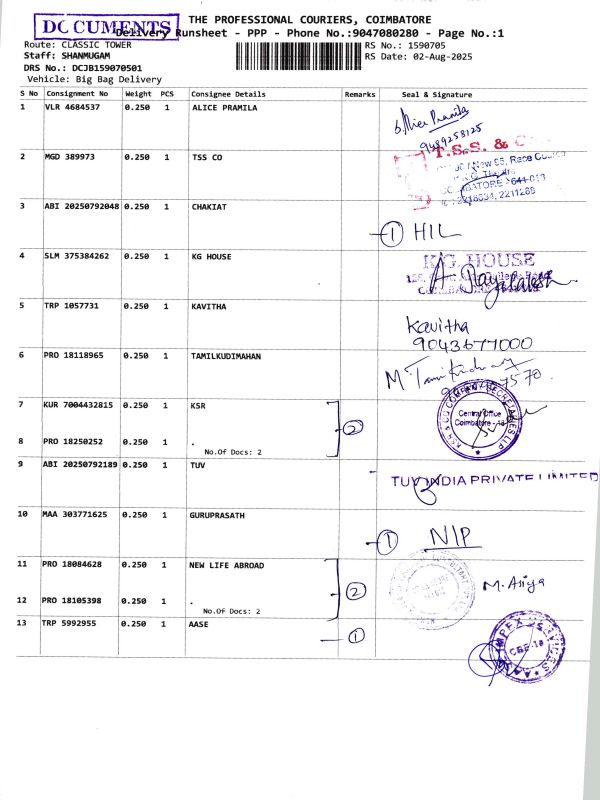 DOCUMENTS
THE PROFESSIONAL COURIERS, COIMBATORE
Delivery Runsheet - PPP - Phone No.:9047080280 - Page No.:1
Route: CLASSIC TOWER
RS No.: 1590705
Staff: SHANMUGAM
RS Date: 02-Aug-2025
DRS No.: DCJB159070501
Vehicle: Big Bag Delivery
S No Consignment No Weight PCS Consignee Details Remarks Seal & Signature
1 VLR 4684537 0.250 1 ALICE PRAMILA
b. Alice Pramila
9489258125
2 MGD 389973 0.250 1 TSS CO
T.S.S. &
New 95, Race
2218634, 2211288
3 ABI 20250792048 0.250 1 CHAKIAT
1 HIL
4 SLM 375384262 0.250 1 KG HOUSE
K.G. HOUSE
5 TRP 1057731 0.250 1 KAVITHA
Kavitha
9043677000
6 PRO 18118965 0.250 1 TAMILKUDIMAHAN
7 KUR 7004432815 0.250 1 KSR
2
Central Office
Coimbatore - 18
8 PRO 18250252 0.250 1 .
No.Of Docs: 2
9 ABI 20250792189 0.250 1 TUV
TUV INDIA PRIVATE LIMITED
10 MAA 303771625 0.250 1 GURUPRASATH
1 NIP
11 PRO 18084628 0.250 1 NEW LIFE ABROAD
2
M. Asiya
12 PRO 18105398 0.250 1 .
No.Of Docs: 2
13 TRP 5992955 0.250 1 AASE
1
CBE-18